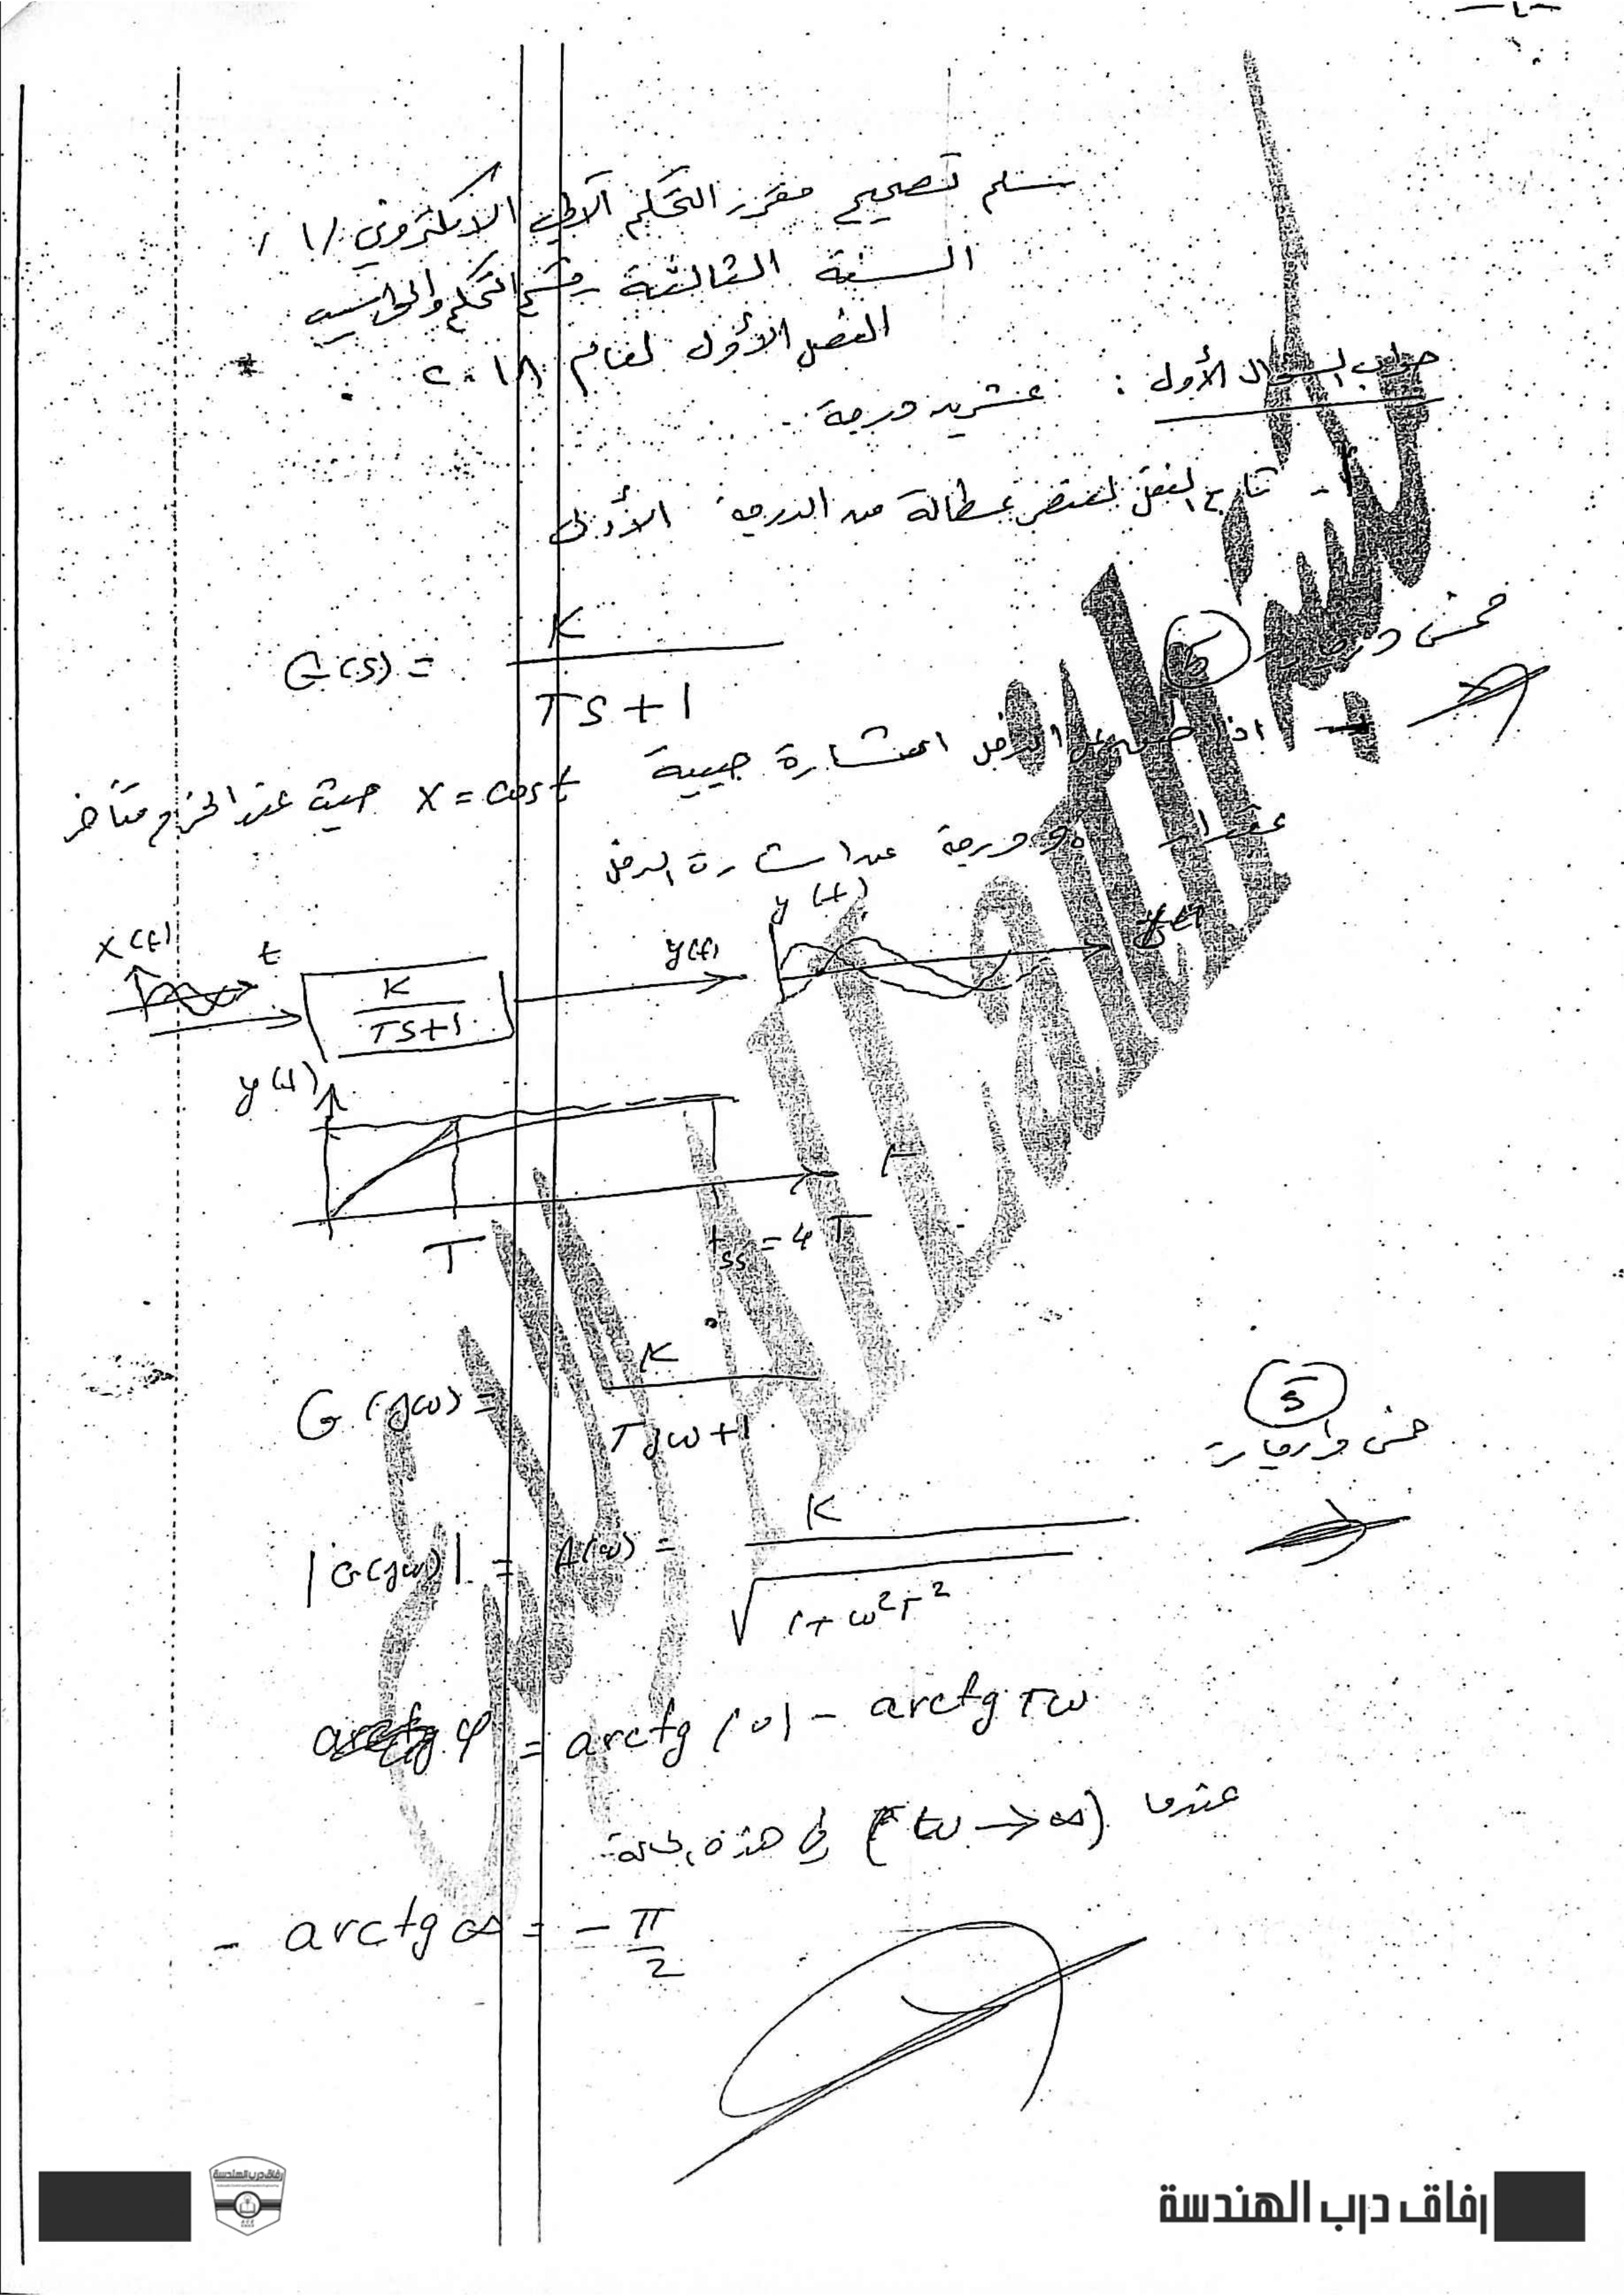 سلم تصحيح مقرر التحكم الآلي الالكتروني /١/
السنة الثالثة قسم التحكم والحواسيب
الفصل الأول لعام ٢٠١٨
جواب السؤال الأول : عشرين درجة
أ- تابع النقل لعنصر عطالة من الدرجة الأولى
G(s) = K / (TS+1)
5
خمس درجات
اذا طبق على الدخل اشارة جيبية x = cost حيث عند الخرج متأخر
بمقدار 90 درجة عن اشارة الدخل
x(t)
t
K / (TS+1)
y(t)
y(t)
y(t)
t
T
tss = 4T
G(jω) = K / (Tjω+1)
5
خمس درجات
|G(jω)| = A(ω) = K / √(1+ω²T²)
φ = arctg(0) - arctg Tω
عندما (ω → ∞) في هذه الحالة
- arctg ∞ = - π/2
رفاق درب الهندسة